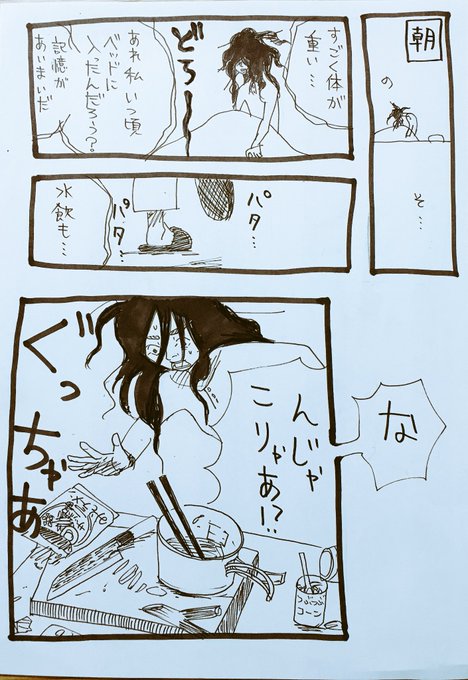 朝
のそ…
すごく体が
重い…
どろ〜〜
あれ私いつ頃
ベッドに
入ったんだろう？
記憶が
あいまいだ
パタ…
パタ…
水飲も…
な
んじゃ
こりゃあ!?
ぐっちゃあ
つぶつぶ
コーン